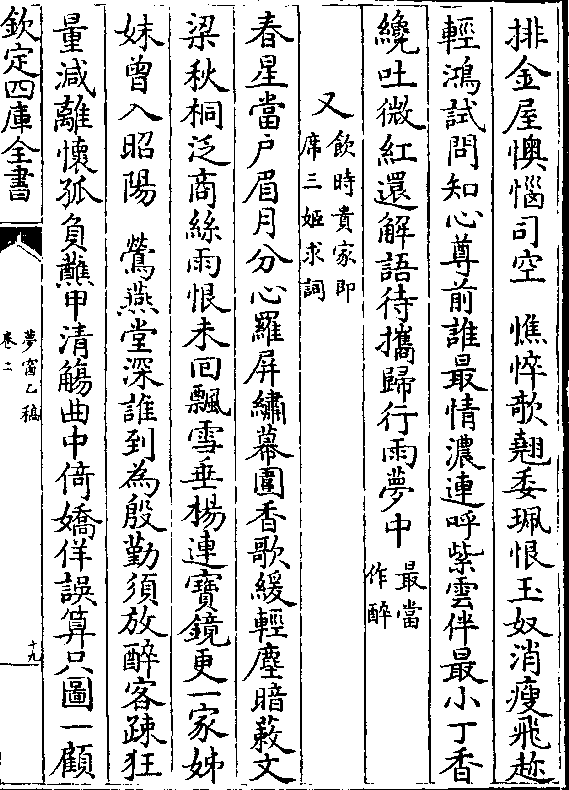 排金屋懊惱司空　憔悴欹翹委珮恨玉奴消瘦飛趁
輕鴻試問知心尊前誰最情濃連呼紫雲伴最小丁香
纔吐微紅還解語待攜歸行雨夢中最當作醉
又飲時貴家即席三姬求詞
春星當户眉月分心羅屏繡幕圍香歌緩輕塵暗蔌文
梁秋桐泛商絲雨恨未回飄雪垂楊連寶鏡更一家姊
妹曾入昭陽　鶯燕堂深誰到為殷勤須放醉客疎狂
量減離懷孤負蘸甲清觴曲中倚嬌佯誤算只圖一顧
欽定四庫全書
夢窗乙稿
卷二
十九